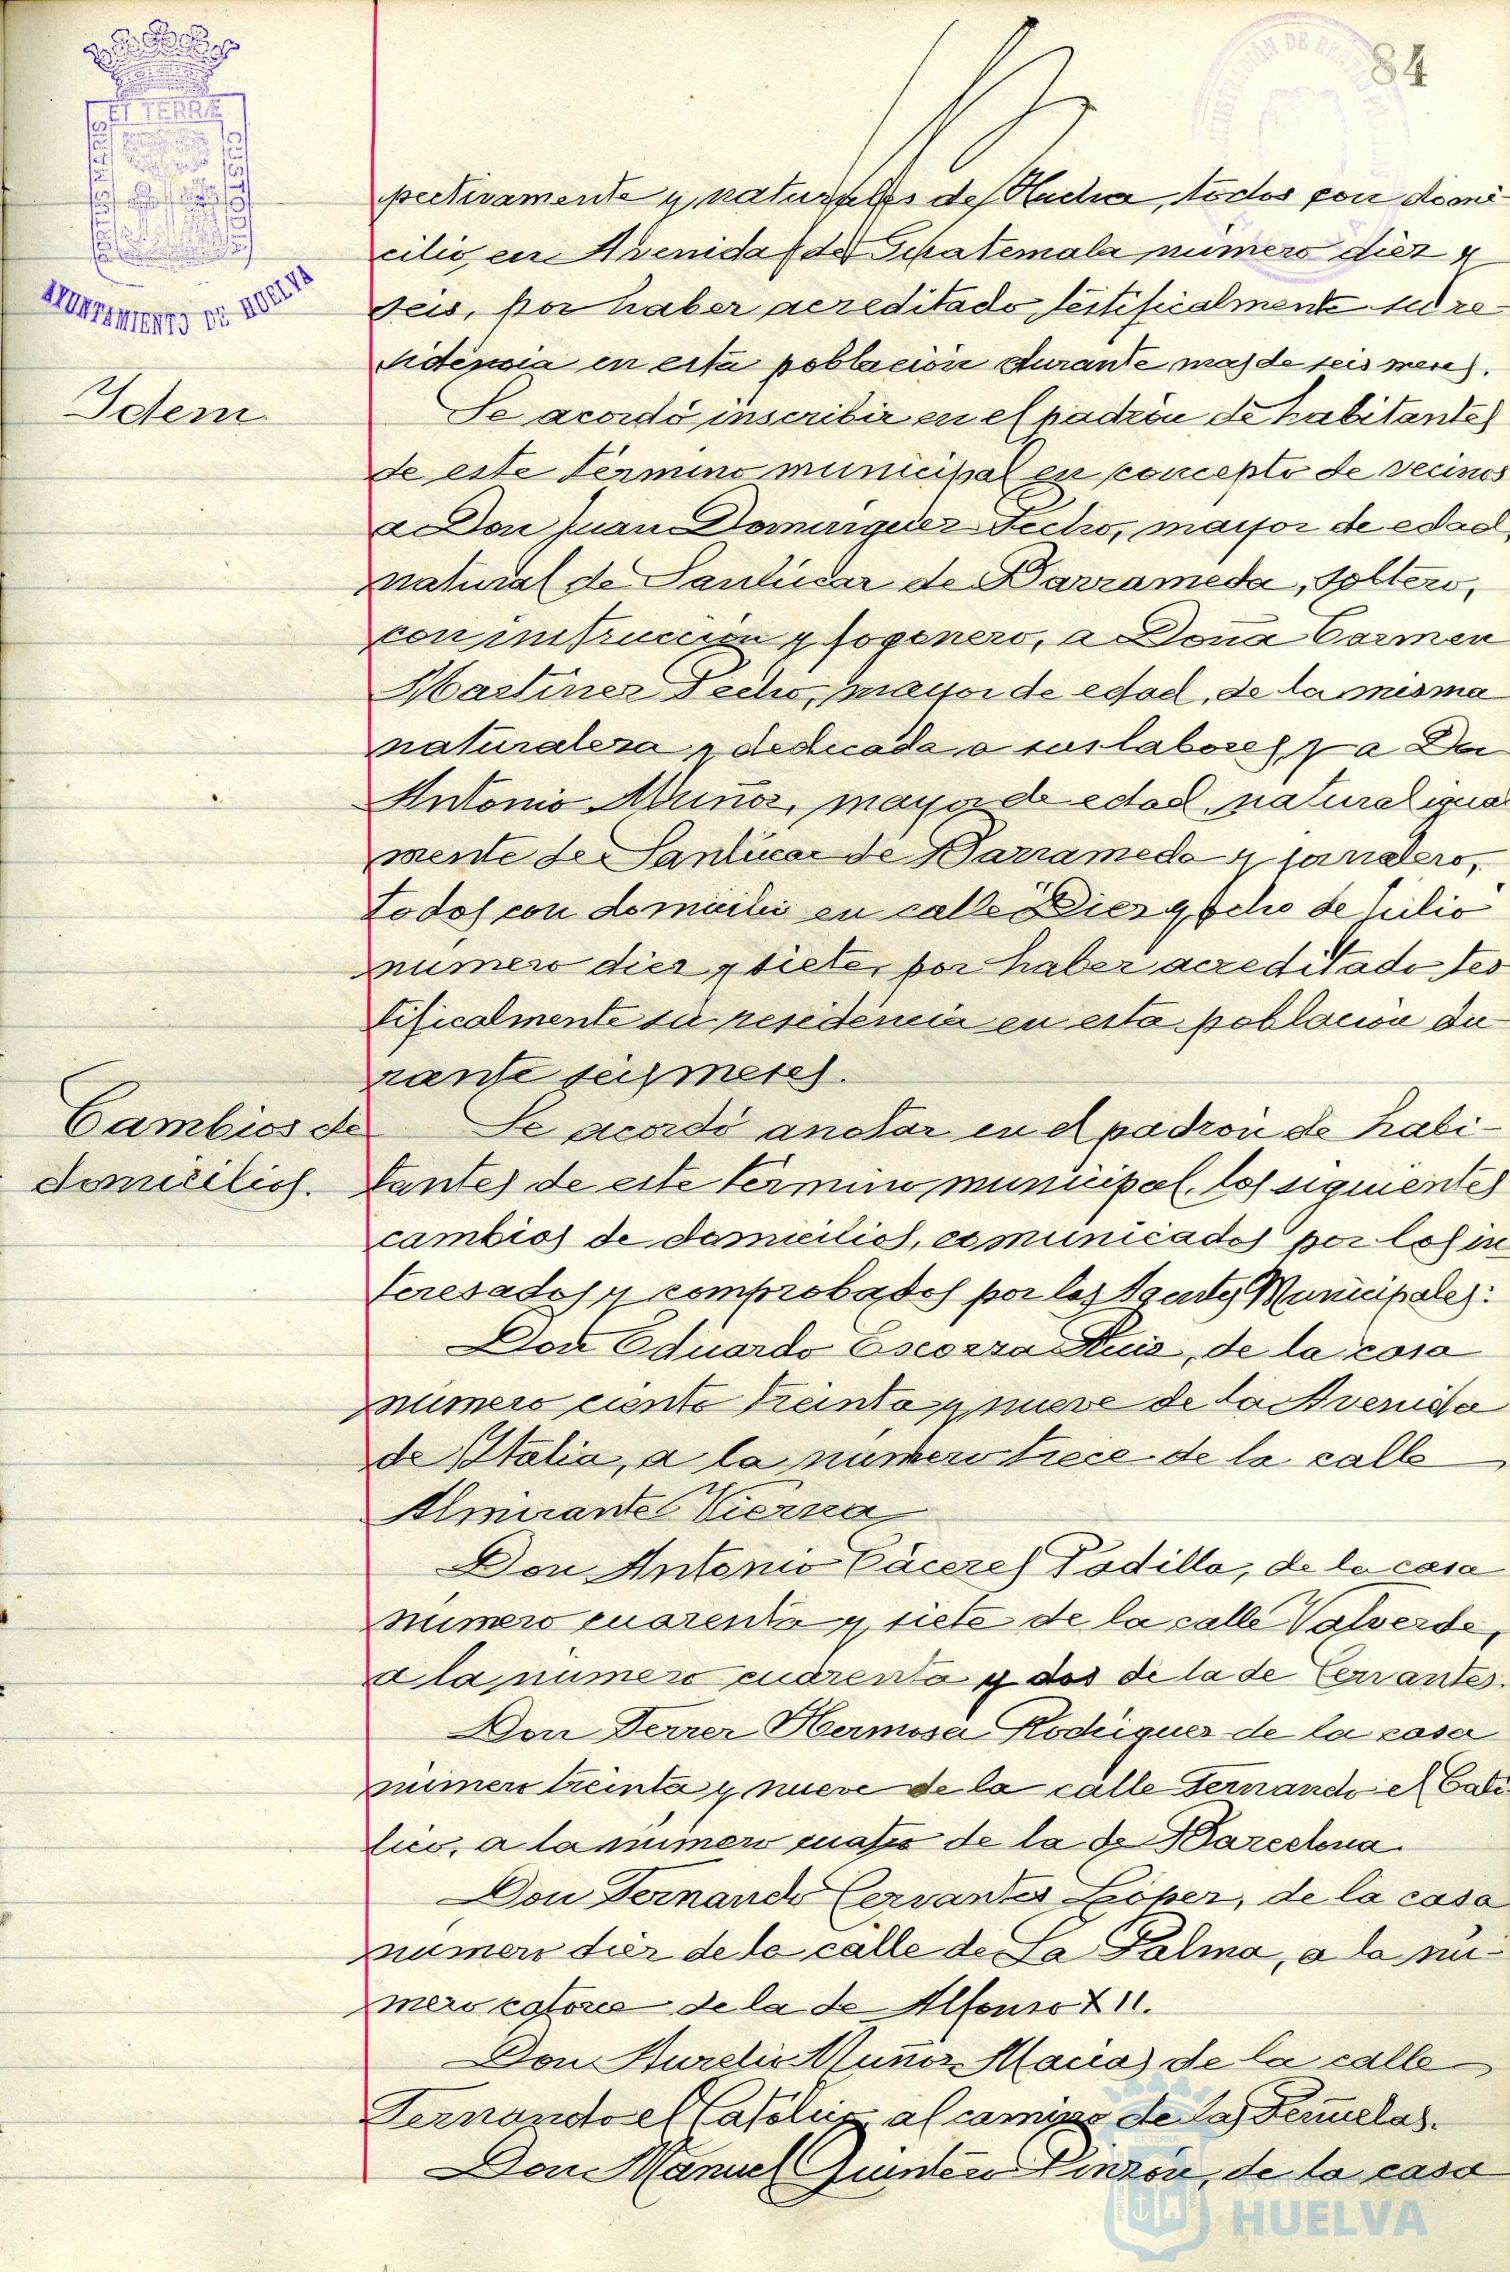 84
ET TERRÆ
AYUNTAMIENTO DE HUELVA
pectivamente y naturales de Huelva, todos con domi-
cilio, en Avenida de Guatemala número diez y
seis, por haber acreditado testificalmente su re-
sidencia en esta población durante mas de seis meses.
Idem
Se acordó inscribir en el padrón de habitantes
de este término municipal en concepto de vecinos
a Don Juan Dominguez Pecho, mayor de edad,
natural de Sanlúcar de Barrameda, soltero,
con instrucción y fogonero, a Doña Carmen
Martinez Pecho, mayor de edad, de la misma
naturaleza y dedicada a sus labores y a Don
Antonio Muñoz, mayor de edad, natural igual
mente de Sanlúcar de Barrameda y jornalero,
todos con domicilio en calle Diez y ocho de Julio
número diez y siete, por haber acreditado tes
tificalmente su residencia en esta población du-
rante seis meses.
Cambios de
domicilios.
Se acordó anotar en el padrón de habi-
tantes de este término municipal, los siguientes
cambios de domicilios, comunicados por los in
teresados y comprobados por los Agentes Municipales:
Don Eduardo Escorza Ruiz, de la casa
número ciento treinta y nueve de la Avenida
de Italia, a la número trece de la calle
Almirante Vierna
Don Antonio Cáceres Padilla, de la casa
número cuarenta y siete de la calle Valverde,
a la número cuarenta y dos de la de Cervantes.
Don Ferrer Hermosa Rodriguez de la casa
número treinta y nueve de la calle Fernando el Cató
lico, a la número cuatro de la de Barcelona.
Don Fernando Cervantes López, de la casa
número diez de la calle de La Palma, a la nú-
mero catorce de la de Alfonso XII.
Don Aurelio Muñoz Macias de la calle
Fernando el Católico al camino de las
Don Manuel Quintero Pinzón, de la casa
Ayuntamiento de
HUELVA